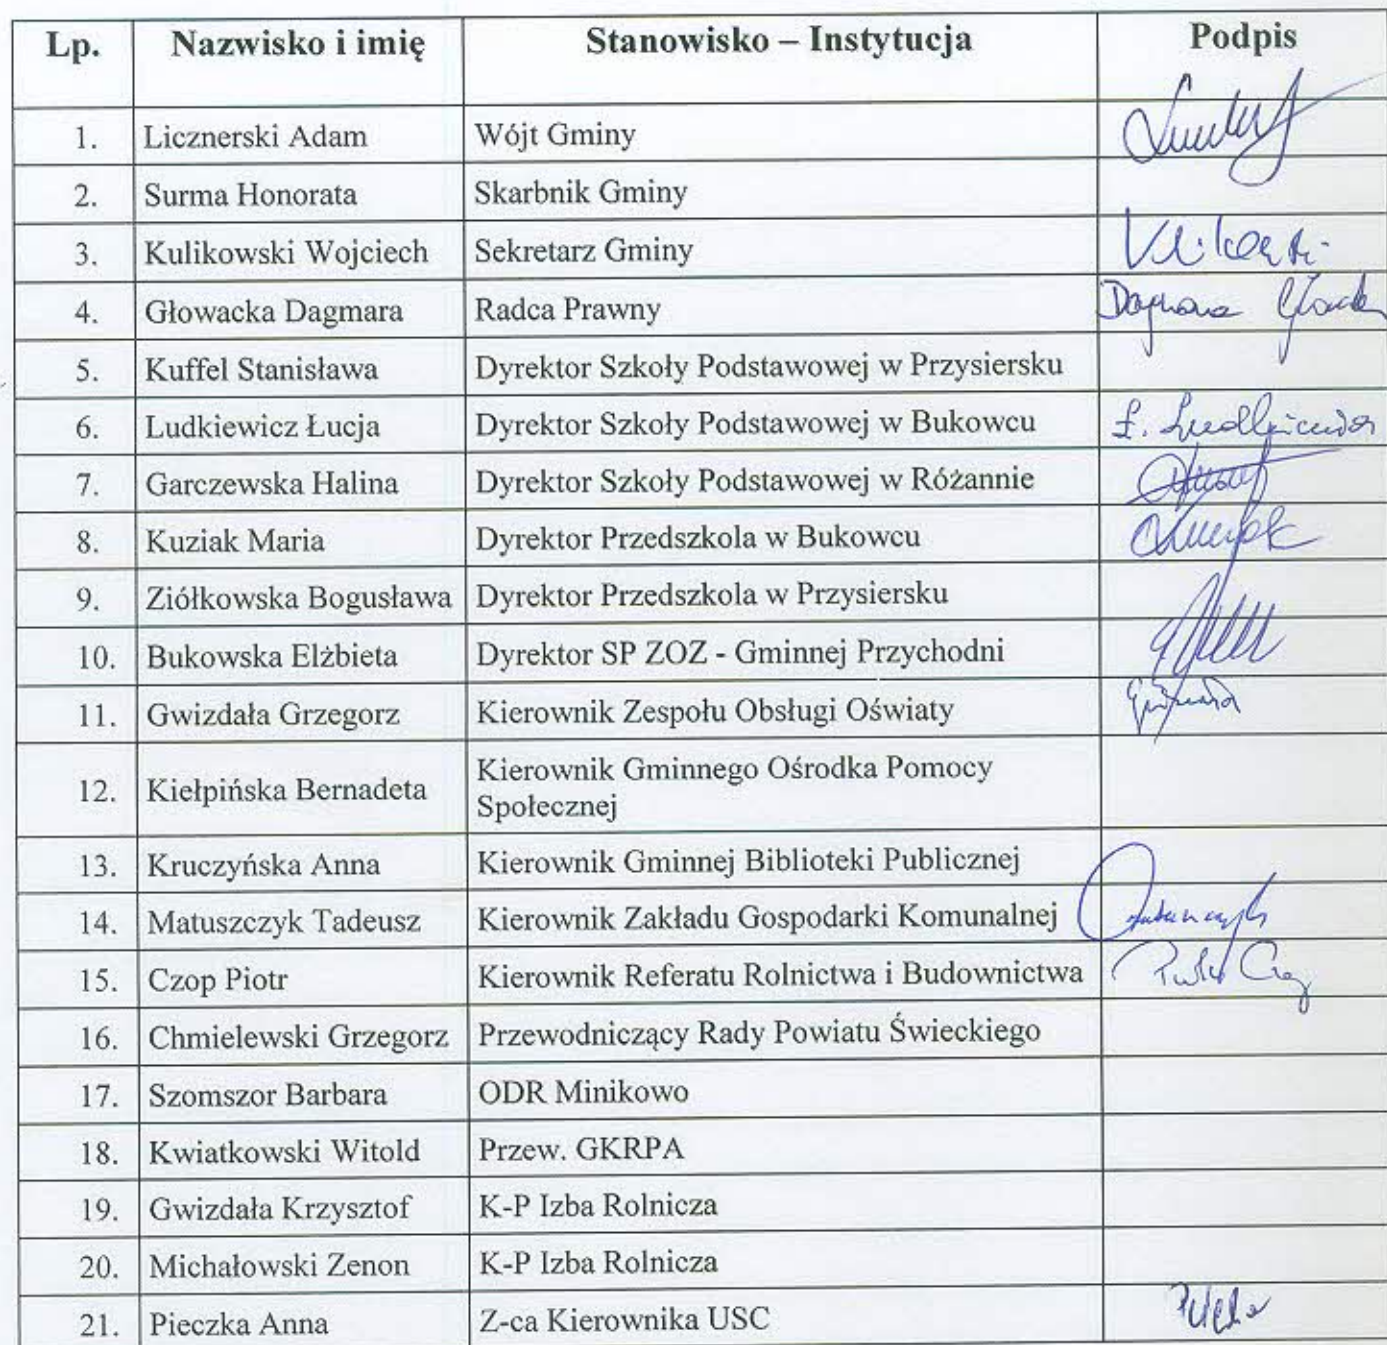 Lp. Nazwisko i imię Stanowisko – Instytucja Podpis
1. Licznerski Adam Wójt Gminy
2. Surma Honorata Skarbnik Gminy
3. Kulikowski Wojciech Sekretarz Gminy
4. Głowacka Dagmara Radca Prawny Dagmara
5. Kuffel Stanisława Dyrektor Szkoły Podstawowej w Przysiersku
6. Ludkiewicz Łucja Dyrektor Szkoły Podstawowej w Bukowcu Ł. Ludkiewicz
7. Garczewska Halina Dyrektor Szkoły Podstawowej w Różannie
8. Kuziak Maria Dyrektor Przedszkola w Bukowcu
9. Ziółkowska Bogusława Dyrektor Przedszkola w Przysiersku
10. Bukowska Elżbieta Dyrektor SP ZOZ - Gminnej Przychodni
11. Gwizdała Grzegorz Kierownik Zespołu Obsługi Oświaty
12. Kiełpińska Bernadeta Kierownik Gminnego Ośrodka Pomocy
Społecznej
13. Kruczyńska Anna Kierownik Gminnej Biblioteki Publicznej
14. Matuszczyk Tadeusz Kierownik Zakładu Gospodarki Komunalnej
15. Czop Piotr Kierownik Referatu Rolnictwa i Budownictwa
16. Chmielewski Grzegorz Przewodniczący Rady Powiatu Świeckiego
17. Szomszor Barbara ODR Minikowo
18. Kwiatkowski Witold Przew. GKRPA
19. Gwizdała Krzysztof K-P Izba Rolnicza
20. Michałowski Zenon K-P Izba Rolnicza
21. Pieczka Anna Z-ca Kierownika USC